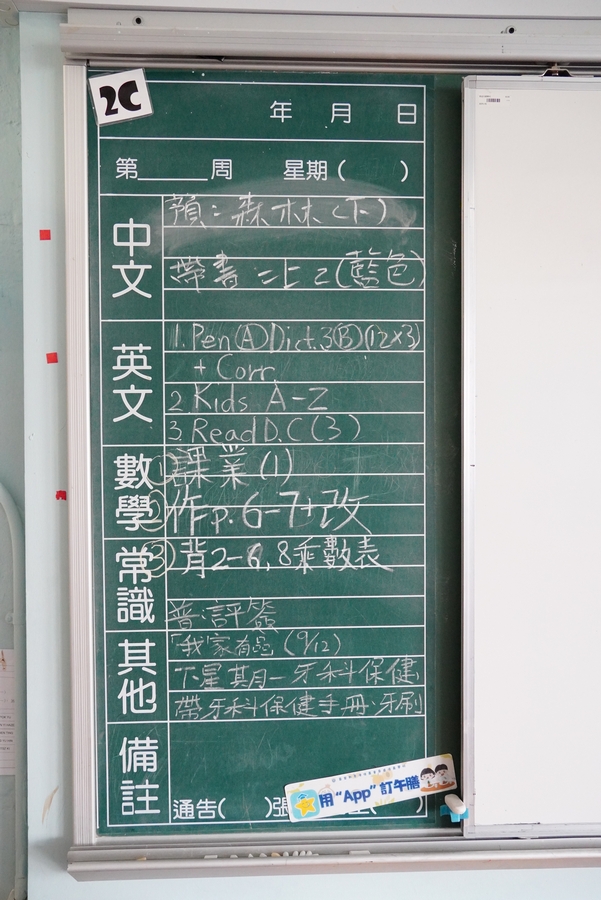 2C
年 月 日
第 周 星期( )
中文
預:森林(下)
帶書:二上2(藍色)
英文
1. Pen(A) Dict.3(B)(12x3)
+ Corr.
2. Kids A-Z
3. Read D.C (3)
數學
① 課業(1)
② 作p.6-7+改
③ 背2-6,8乘數表
常識
普:評簽
其他
(9/12)
下星期一牙科保健
帶牙科保健手冊、牙刷
備註
通告( )張
用"App"訂午膳